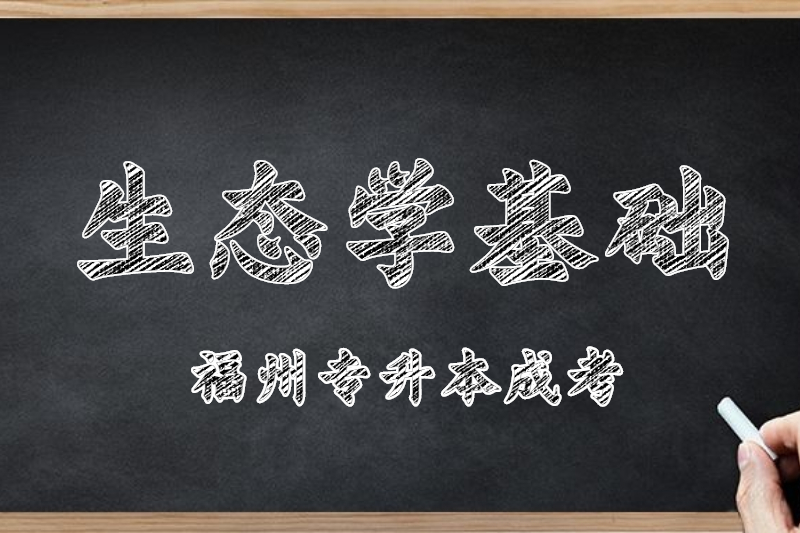 生态学基础
福州专升本成考